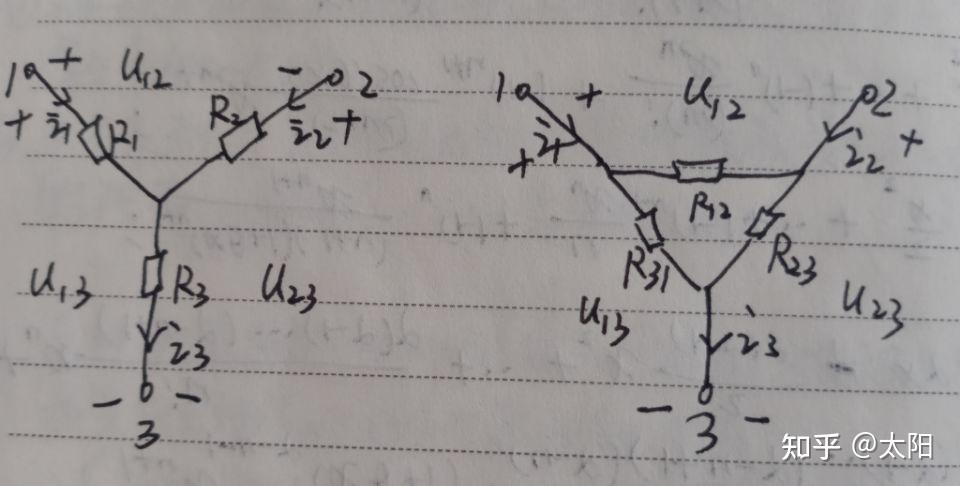 1 + U12 - 2
+ i1 R1 R2 i2 +
U13 R3 U23
i3
- -
3
1 + U12 2
+ i1 i2 +
R12
R31 R23
U13 U23
i3
- -
3
知乎 @太阳